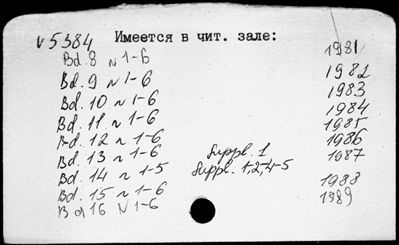 v 5384 Имеется в чит. зале:
Bd. 8 N 1-6 1981
Bd. 9 N 1-6 1982
Bd. 10 N 1-6 1983
Bd. 11 N 1-6 1984
Bd. 12 N 1-6 1985
Bd. 13 N 1-6 Suppl. 1 1986
Bd. 14 N 1-5 Suppl. 1,2,4-5 1987
Bd. 15 N 1-6 1988
Bd 16 N 1-6 1989